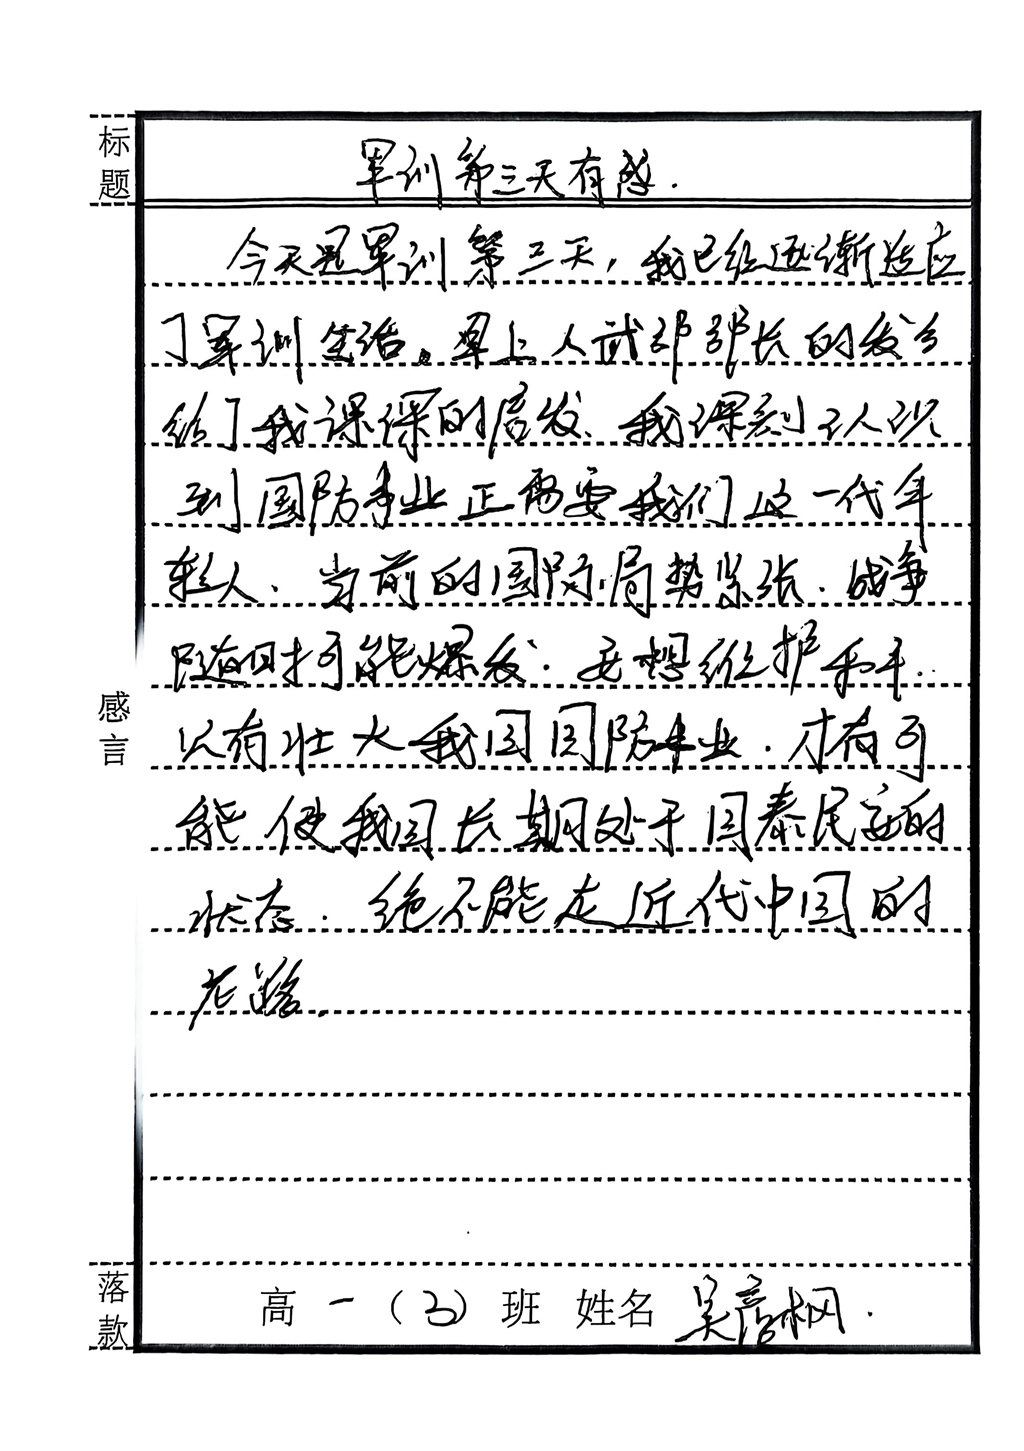 标题
军训第三天有感.
今天是军训第三天，我已经逐渐适应
了军训生活。早上人武部部长的发言
给了我深深的启发、我深刻认识
到国防事业正需要我们这一代年
轻人. 当前的国际局势紧张. 战争
随时可能爆发. 要想维护和平.
只有壮大我国国防事业. 才有可
能使我国长期处于国泰民安的
状态. 绝不能走近代中国的
老路.
感言
落款
高一（3）班 姓名 吴彦枫.